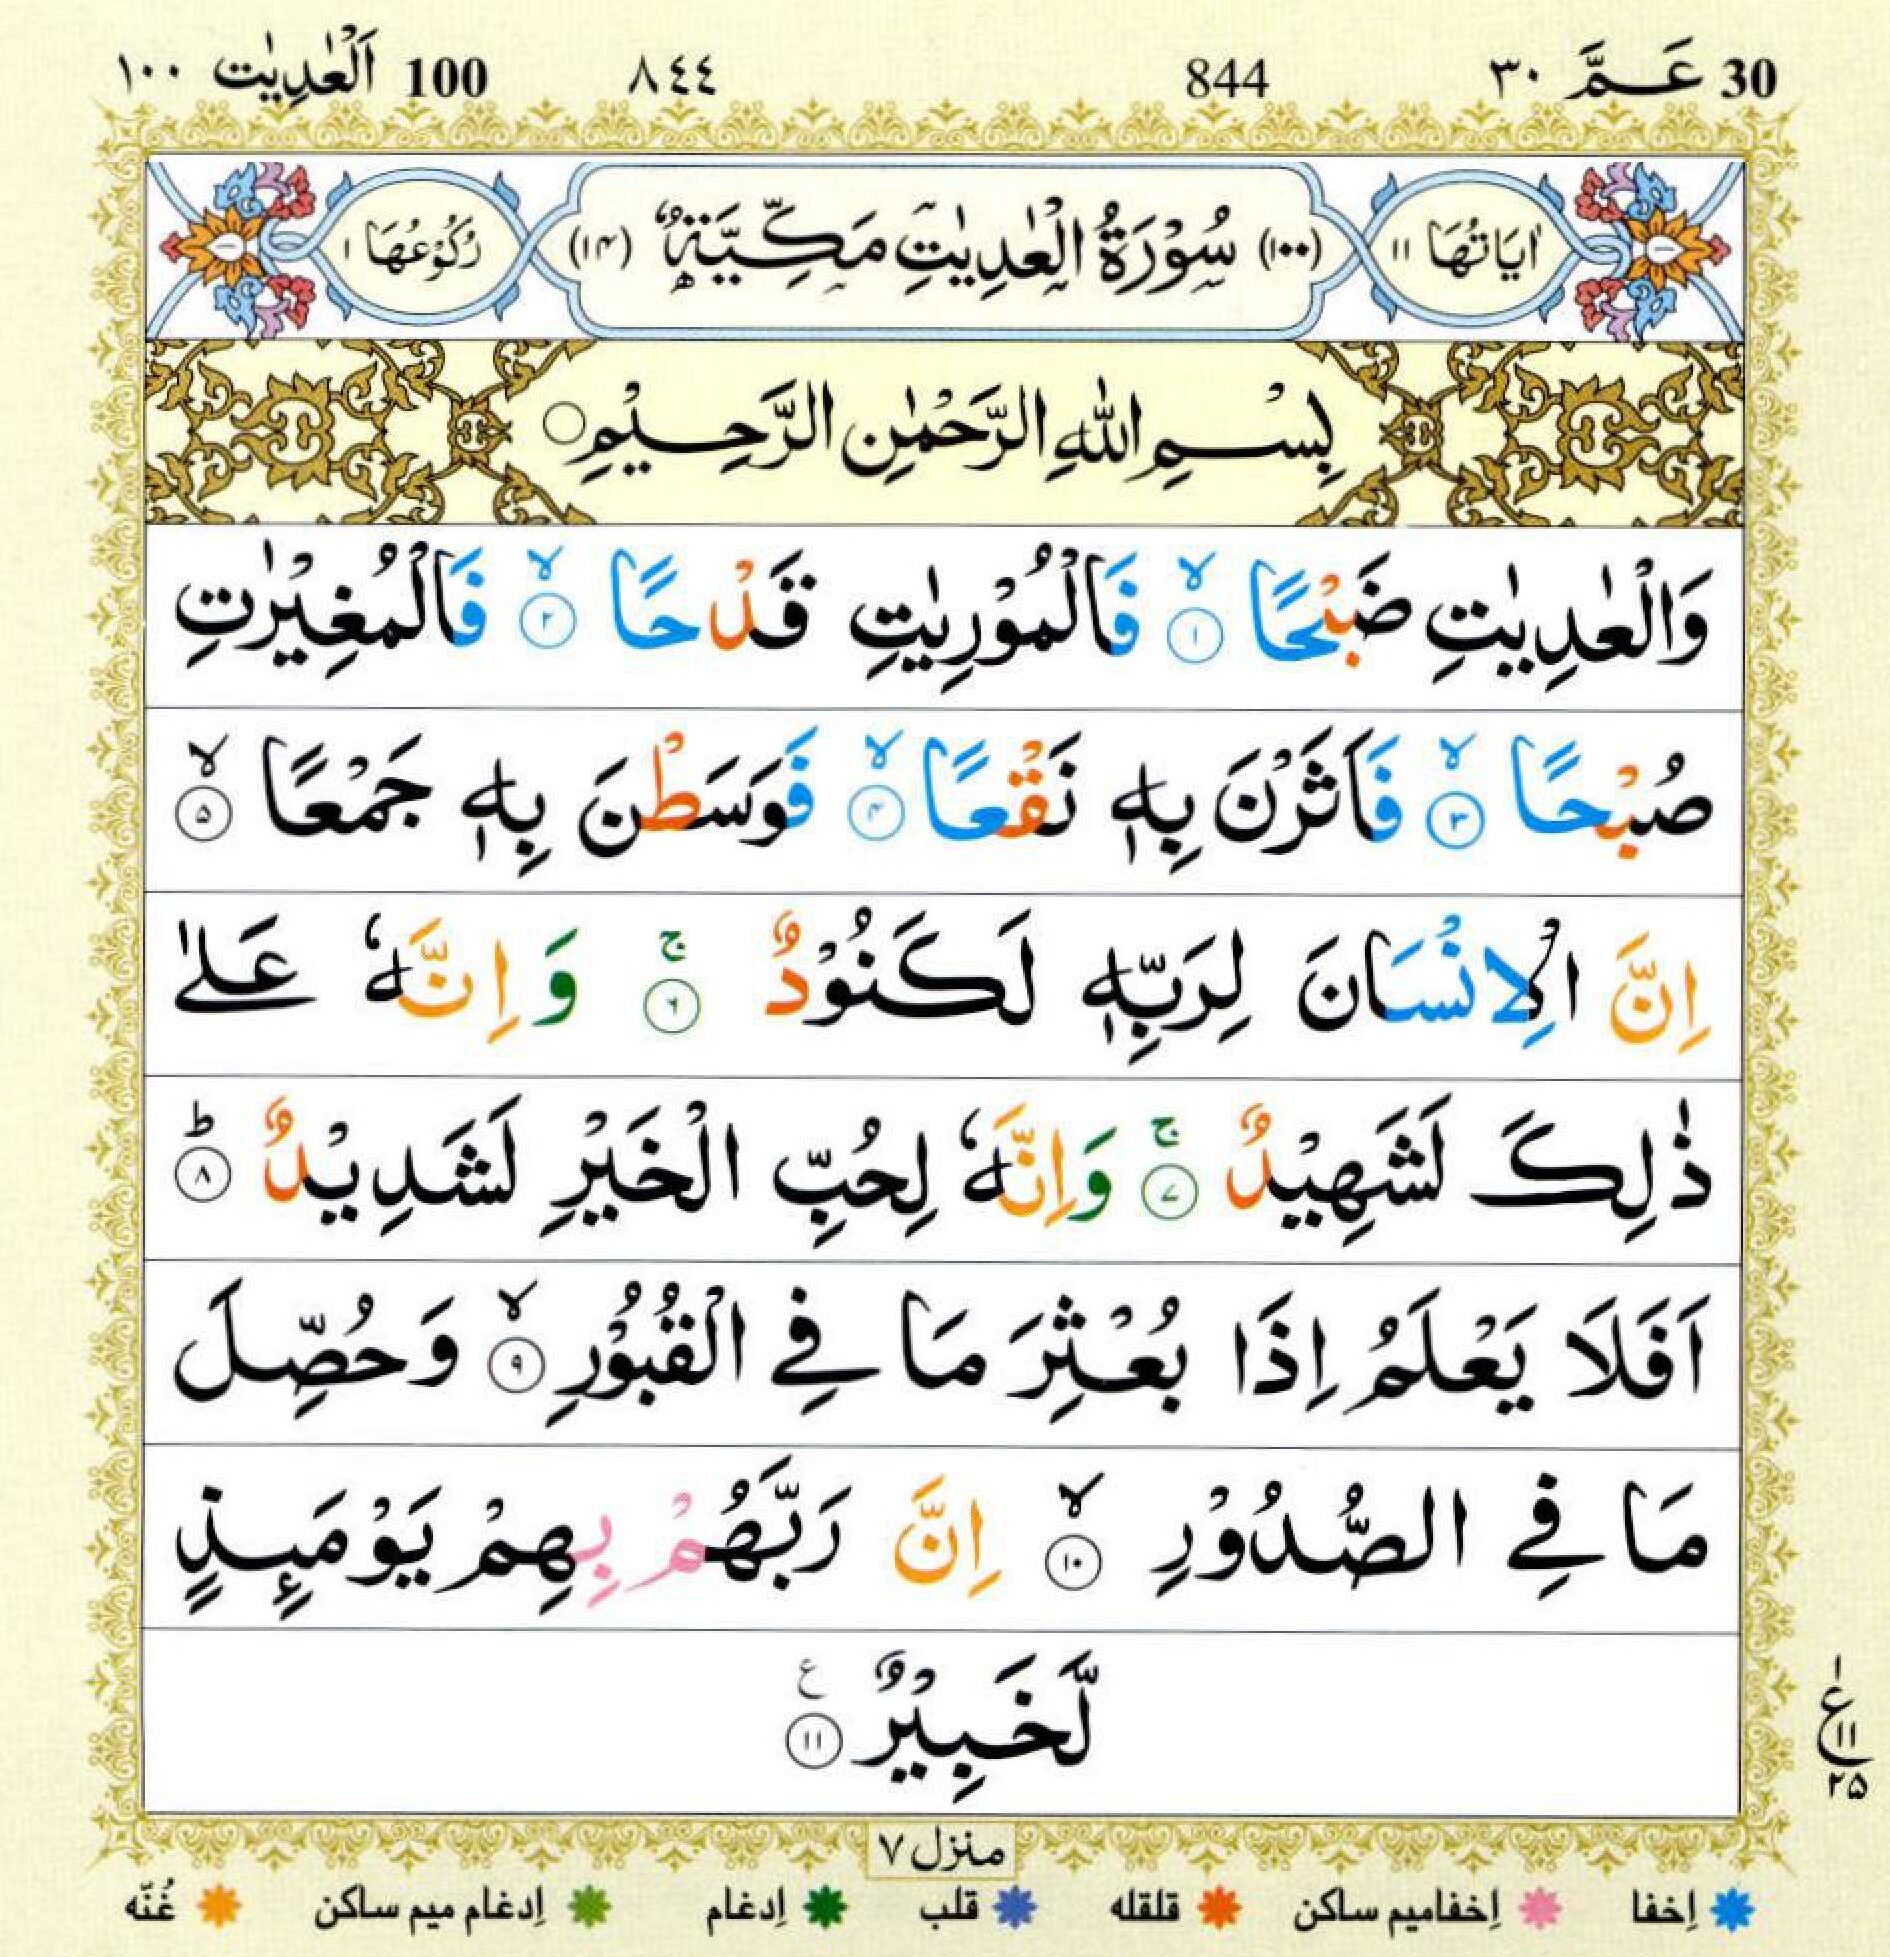 30 عَمَّ ٣٠ 844 ٨٤٤ 100 اَلْعٰدِیٰت ١٠٠
اٰيَاتُهَا ١١ (١٠٠) سُوْرَةُ الْعٰدِیٰتِ مَكِّيَّةٌ (١٤) رُكُوْعُهَا ١
بِسْمِ اللّٰهِ الرَّحْمٰنِ الرَّحِيْمِ ○
وَالْعٰدِیٰتِ ضَبْحًا ۙ﴿١﴾ فَالْمُوْرِیٰتِ قَدْحًا ۙ﴿٢﴾ فَالْمُغِيْرٰتِ
صُبْحًا ۙ﴿٣﴾ فَاَثَرْنَ بِهٖ نَقْعًا ۙ﴿٤﴾ فَوَسَطْنَ بِهٖ جَمْعًا ۙ﴿٥﴾
اِنَّ الْاِنْسَانَ لِرَبِّهٖ لَكَنُوْدٌ ۚ﴿٦﴾ وَاِنَّهٗ عَلٰى
ذٰلِكَ لَشَهِيْدٌ ۚ﴿٧﴾ وَاِنَّهٗ لِحُبِّ الْخَيْرِ لَشَدِيْدٌ ؕ﴿٨﴾
اَفَلَا يَعْلَمُ اِذَا بُعْثِرَ مَا فِي الْقُبُوْرِ ۙ﴿٩﴾ وَحُصِّلَ
مَا فِي الصُّدُوْرِ ۙ﴿١٠﴾ اِنَّ رَبَّهُمْ بِهِمْ يَوْمَئِذٍ
لَّخَبِيْرٌ ﴿١١﴾ ع
١ ع ١١ ٢٥
منزل ٧
اِخفا اِخفامیم ساکن قلقله قلب اِدغام اِدغام میم ساکن غُنّه